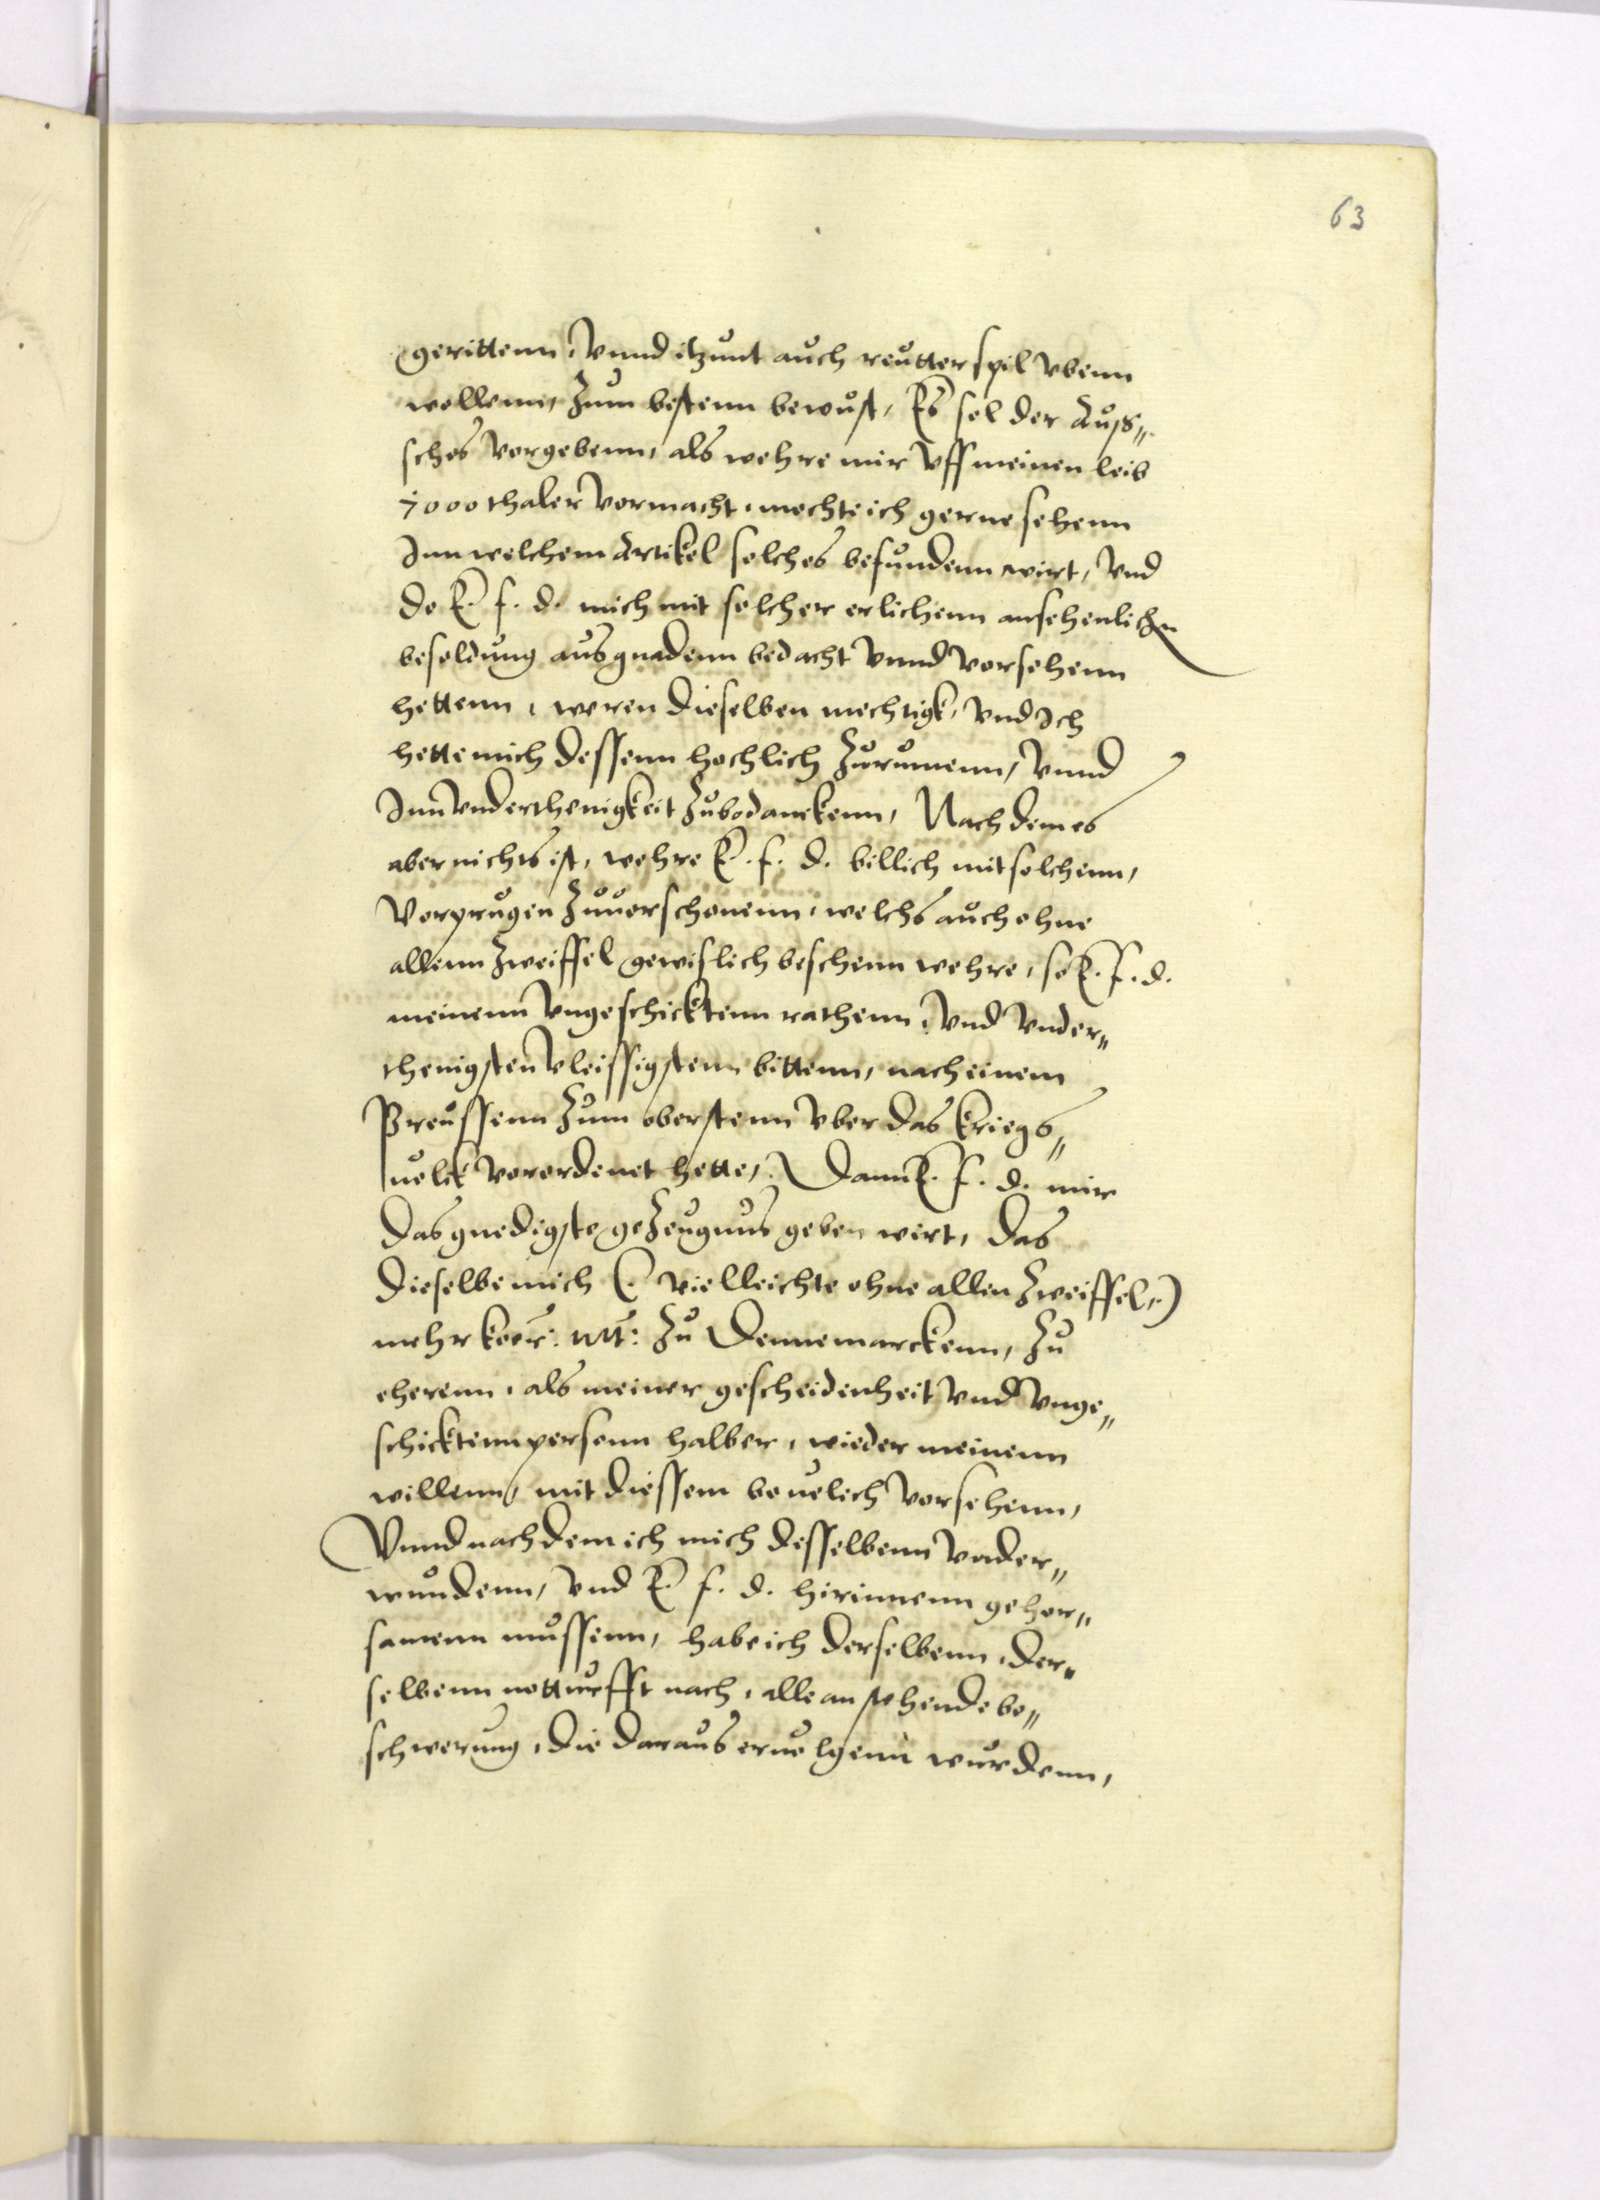 63
gerittenn, Vnnd itzunt auch reutterspil vbenn
wollenn, Zum bestenn bewust, Es sol der Auß„
sches vorgebenn, als wehre mir vff meinen leib
7000 thaler vormacht, mochte ich gerne sehenn
Inn welchem Artikel solches befundenn wirt, vnd
do E. f. d. mich mit solcher erlichenn ansehenlichen
besoldung aus gnadenn bedacht vnnd vorsehenn
hettenn, weren dieselben mechtigk, vnd Ich
hette mich dessenn hochlich Zurumenn, vnnd
Inn vnderthenigkeit Zubodanckenn, Nach dem es
aber nichts ist, wehre E. f. d. billich mit solchenn,
Vorprugen Zuuorschonenn, welchs auch ohne
allenn Zweiffel gewislich beschenn wehre, so E. f. d.
meinenn vngeschicktenn rathenn, vnd vnder„
thenigsten vleissigstenn bittenn, nach einem
Preussenn Zum oberstenn vber das kriegs„
uolck vorordenet hette, Dann E. f. d. mir
das gnedigste geZeugnus geben wirt, das
dieselbe mich (. vielleichte ohne allen Zweiffel,)
mehr koer: mt: Zu Dennemarckenn, Zu
eherenn, als meiner gescheidenheit vnd vnge„
schicktenn personn halber, wieder meinenn
willenn, mit diessem beuelich vorsehenn,
Vnnd nach dem ich mich desselbenn vnder„
wundenn, vnd E. f. d. hirinnenn gehor„
samenn mussenn, habe ich derselbenn, der„
selbenn notturfft nach, alle anstehende be„
schwerung, die daraus eruolgenn wurdenn,